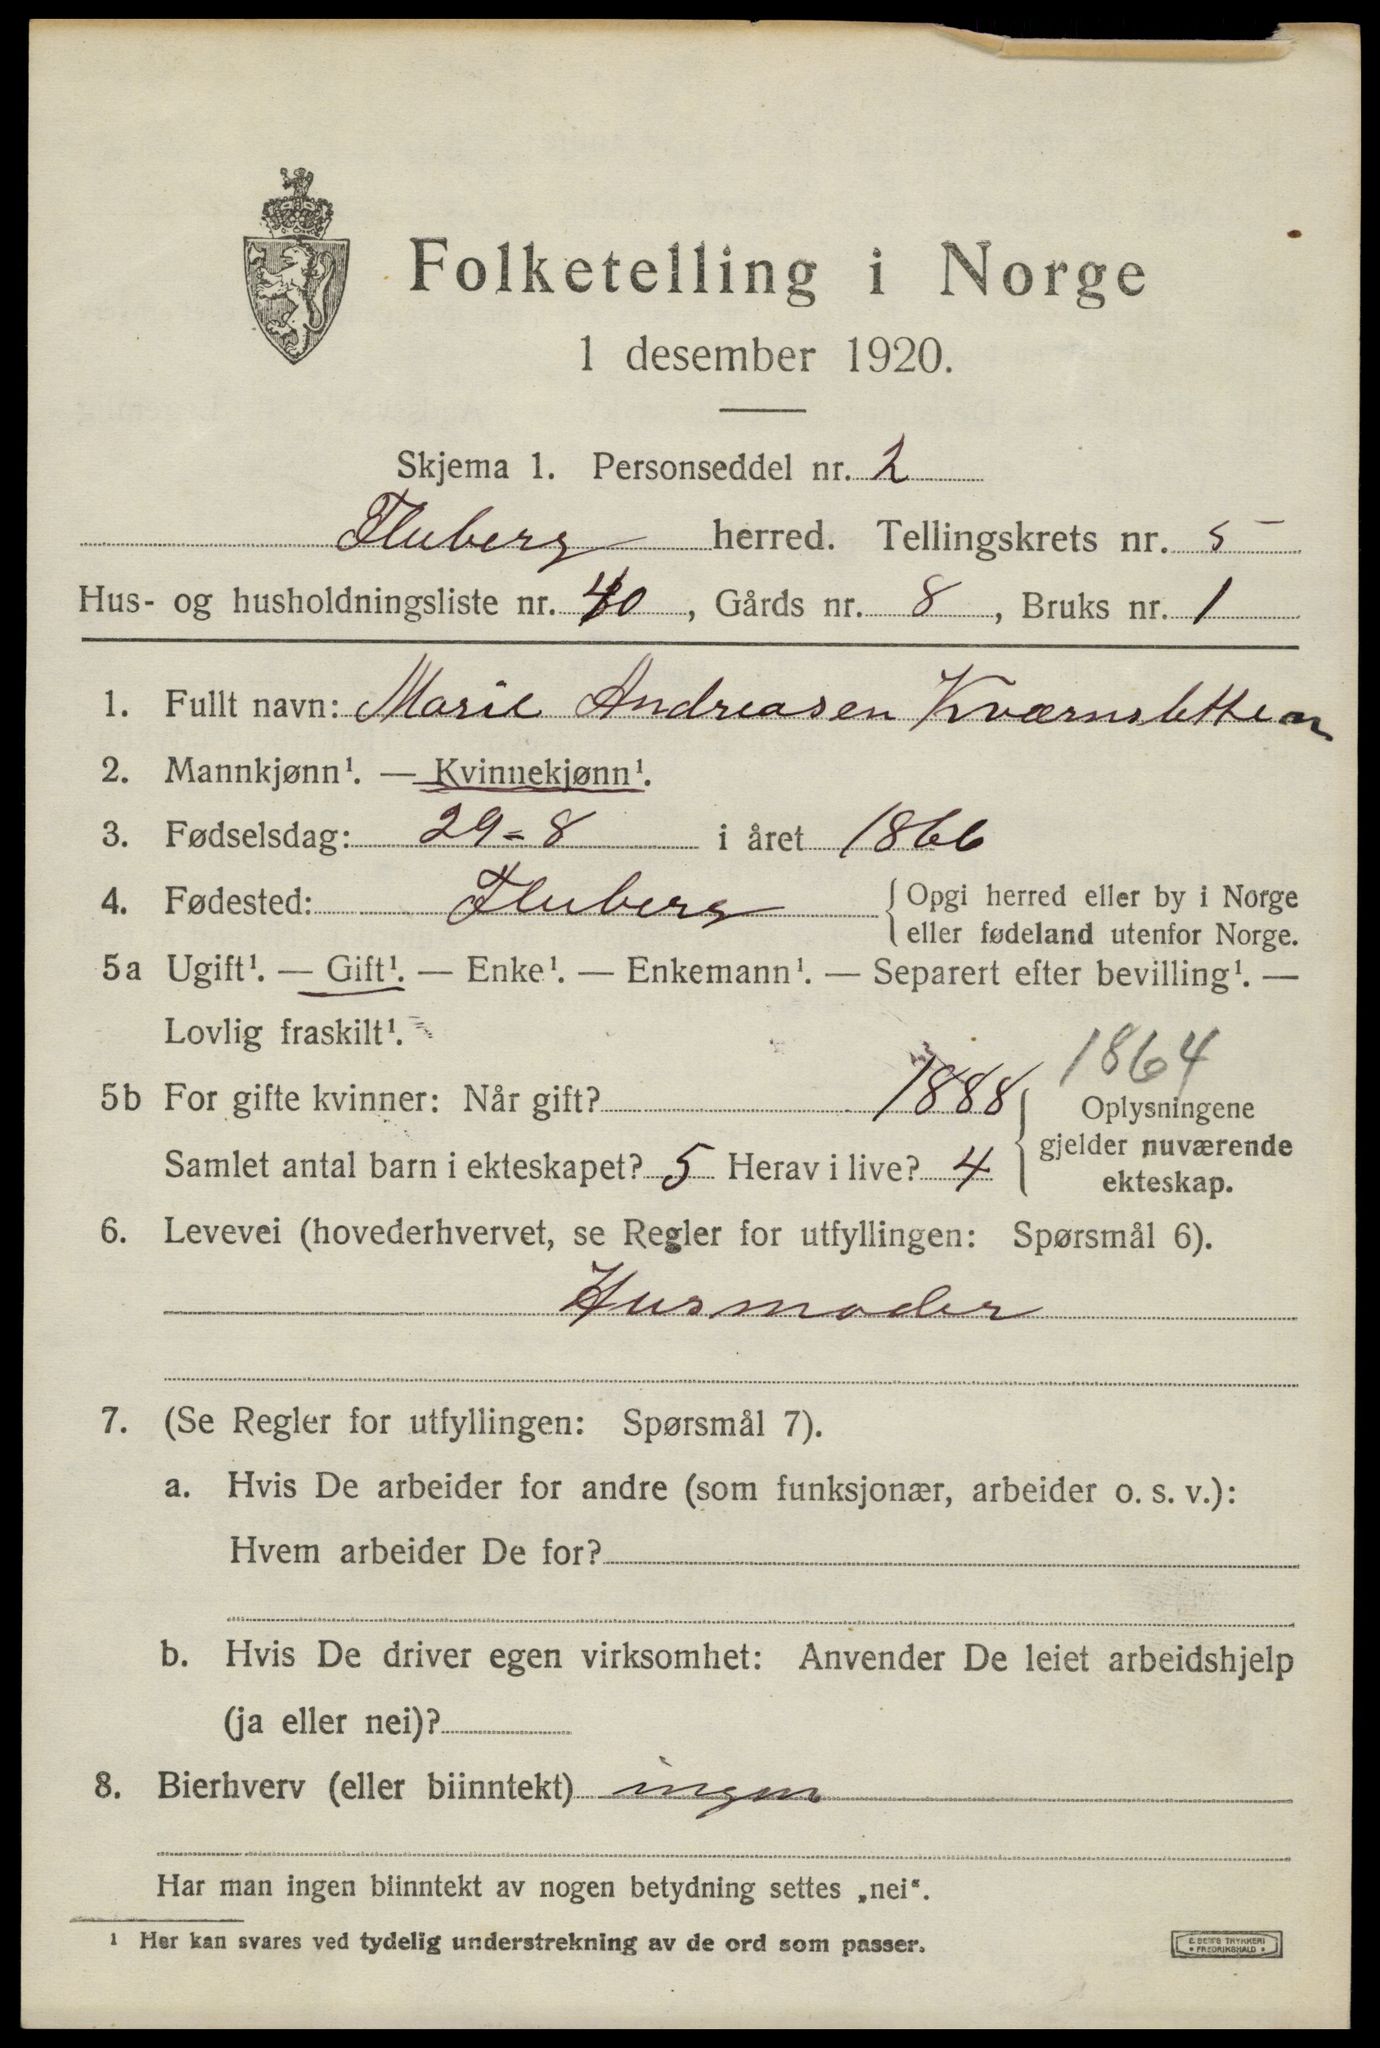 Folketelling i Norge
1 desember 1920.
Skjema 1. Personseddel nr. 2
Fluberg herred. Tellingskrets nr. 5
Hus- og husholdningsliste nr. 40, Gårds nr. 8, Bruks nr. 1
1. Fullt navn: Marie Andreasen Kværnsletten
2. Mannkjønn¹. — Kvinnekjønn¹.
3. Fødselsdag: 29-8 i året 1866
4. Fødested: Fluberg {Opgi herred eller by i Norge
eller fødeland utenfor Norge.
5a Ugift¹. — Gift¹. — Enke¹. — Enkemann¹. — Separert efter bevilling¹. —
Lovlig fraskilt¹.
1864
5b For gifte kvinner: Når gift? 1888 { Oplysningene
gjelder nuværende
Samlet antal barn i ekteskapet? 5 Herav i live? 4
ekteskap.
6. Levevei (hovederhvervet, se Regler for utfyllingen: Spørsmål 6).
Husmoder
7. (Se Regler for utfyllingen: Spørsmål 7).
a. Hvis De arbeider for andre (som funksjonær, arbeider o. s. v.):
Hvem arbeider De for?
b. Hvis De driver egen virksomhet: Anvender De leiet arbeidshjelp
(ja eller nei)?
8. Bierhverv (eller biinntekt) ingen
Har man ingen biinntekt av nogen betydning settes „nei“.
¹ Her kan svares ved tydelig understrekning av de ord som passer.
E. SEM'S TRYKKERI
• FREDRIKSHALD •